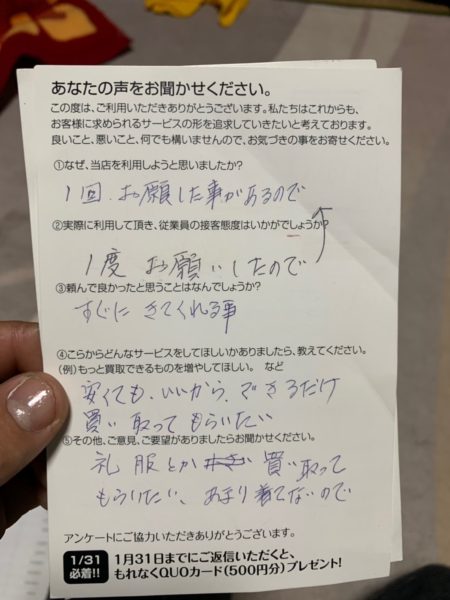 あなたの声をお聞かせください。
この度は、ご利用いただきありがとうございます。私たちはこれからも、
お客様に求められるサービスの形を追求していきたいと考えております。
良いこと、悪いこと、何でも構いませんので、お気づきの事をお寄せください。
①なぜ、当店を利用しようと思いましたか?
1回、お願した事があるので
②実際に利用して頂き、従業員の接客態度はいかがでしょうか?
1度 お願いしたので
③頼んで良かったと思うことはなんでしょうか?
すぐに きてくれる事
④こらからどんなサービスをしてほしいかありましたら、教えてください。
(例)もっと買取できるものを増やしてほしい。 など
安くても、いいから、できるだけ
買い取ってもらいたい
⑤その他、ご意見、ご要望がありましたらお聞かせください。
礼服とか 買い取って
もらいたい、あまり着てないので
アンケートにご協力いただきありがとうございます。
1/31 必着!! 1月31日までにご返信いただくと、
もれなくQUOカード(500円分)プレゼント!